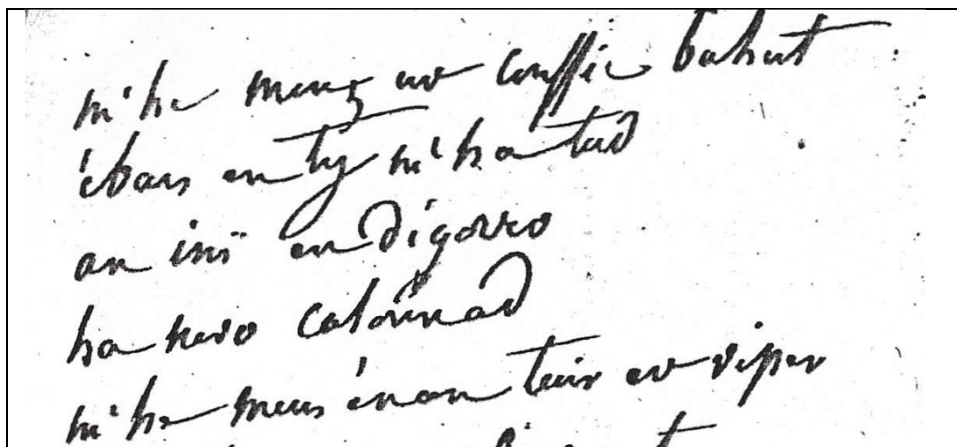 m'he meuz ur couffic bahut
ébars en ty m'ha tad
an inï en digorro
ha nevo calounad
m'he meus énan teir er viper